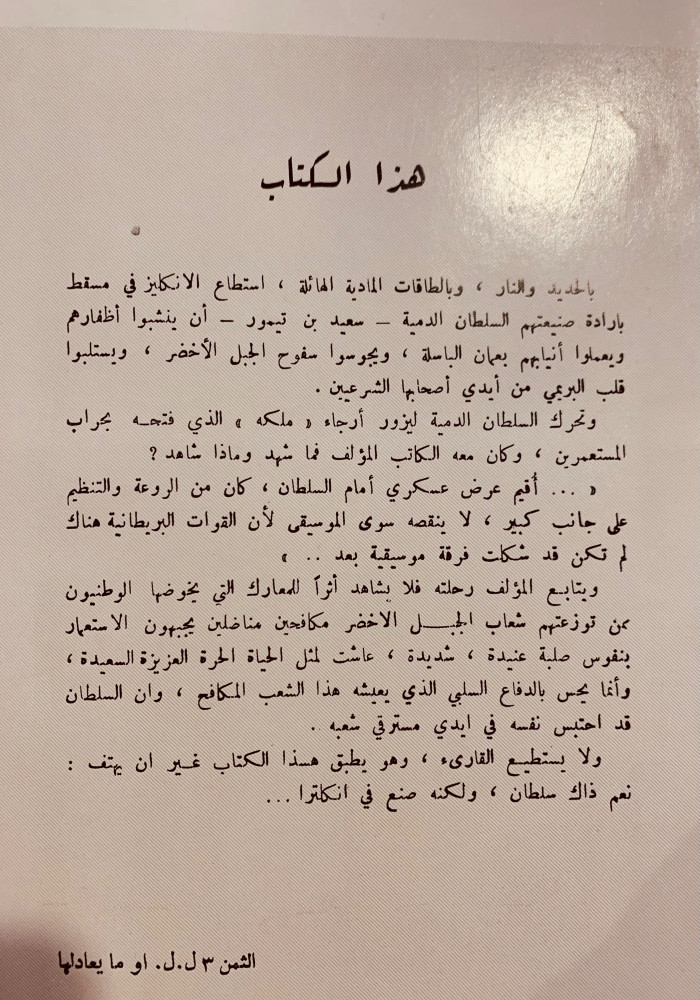 هذا الكتاب
بالحديد والنار ، وبالطاقات المادية الهائلة ، استطاع الانكليز في مسقط
بارادة صنيعتهم السلطان الدمية – سعيد بن تيمور – أن ينشبوا أظفارهم
ويعملوا أنيابهم بعمان الباسلة ، ويجوسوا سفوح الجبل الأخضر ، ويستلبوا
قلب البريمي من أيدي أصحابها الشرعيين .
وتحرك السلطان الدمية ليزور أرجاء « ملكه » الذي فتحه بجراب
المستعمرين ، وكان معه الكاتب المؤلف فما شهد وماذا شاهد ?
« ... أُقيم عرض عسكري أمام السلطان ، كان من الروعة والتنظيم
على جانب كبير ، لا ينقصه سوى الموسيقى لأن القوات البريطانية هناك
لم تكن قد شكلت فرقة موسيقية بعد .. »
ويتابع المؤلف رحلته فلا يشاهد أثراً للمعارك التي يخوضها الوطنيون
ممن توزعتهم شعاب الجبل الاخضر مكافحين مناضلين يجبهون الاستعمار
بنفوس صلبة عنيدة ، شديدة ، عاشت لمثل الحياة الحرة العزيزة السعيدة ،
وأنما يحس بالدفاع السلبي الذي يعيشه هذا الشعب المكافح ، وان السلطان
قد احتبس نفسه في ايدي مسترقي شعبه .
ولا يستطيع القارىء ، وهو يطبق هسذا الكتاب غير ان يهتف :
نعم ذاك سلطان ، ولكنه صنع في انكلترا ...
الثمن ٣ ل.ل. او ما يعادلها